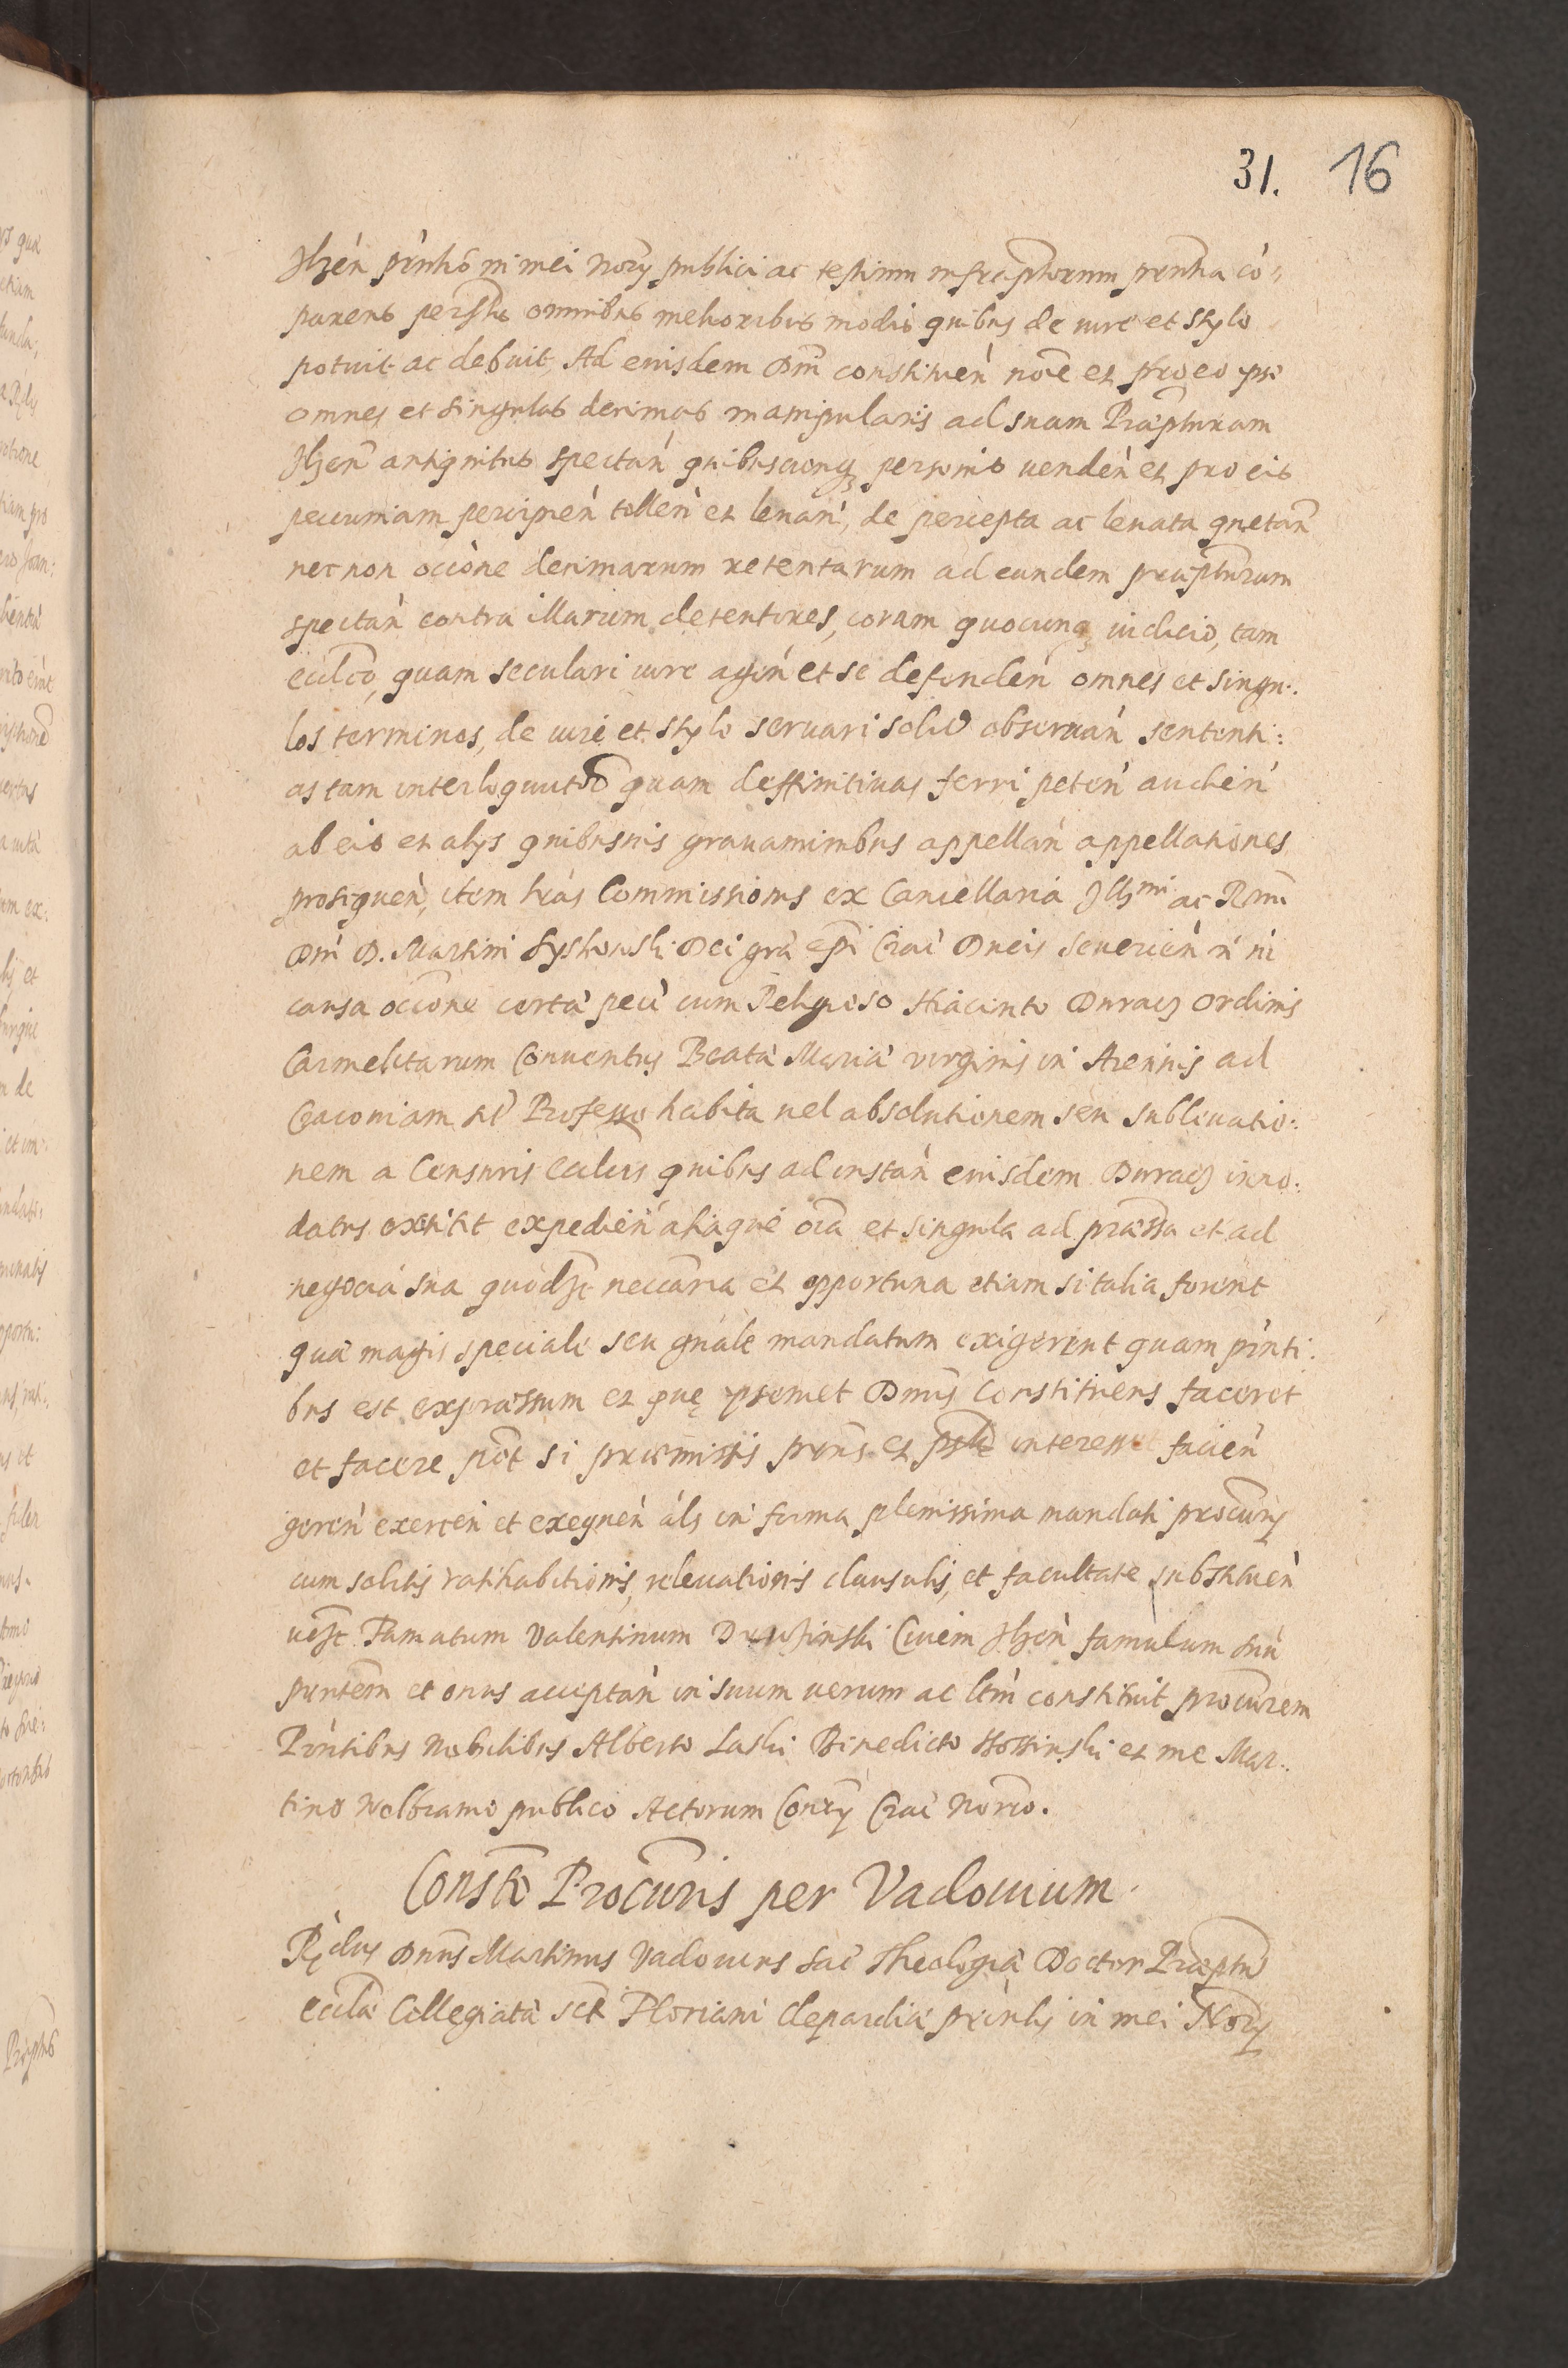 31. 16
Ilzen in mei Nory publici ac testium infrascriptorum co-
parens omnibus melioribus modis quibus de iure et stylo
potuit ac debuit, Ad eiusdem Dni constituen noie et pro eo
omnes et singulas decimas manipularis ad suam Praepturam
Ilzen antiquitus spectan quibuscunq personis venden et pro eis
pecuniam percipien tollen et levan, de percepta ac levata quetan
nec non occione decimarum retentarum ad eandem praepturam
spectan contra illarum detentores, coram quocunq iudicio, tam
ecclco, quam seculari iure agen et se defenden omnes et singu-
los terminos, de iure et stylo servari observan sententi:
as tam quam deffinitivas ferri peten audien
ab eis et alys quibusvis gravaminibus appellan appellationes
prosequen, item lras Commissionis ex Cancellaria Illmi ac Rmi
Dni D. Martini Syskouski Dei gra epi Crac Ducis Severien in
causa occione certa pecu cum Religioso Hiacinto Duracz Ordinis
Carmelitarum Conventus Beata Maria virginis in Arenis ad
Cracoviam Professo habita vel absolutionem seu sublevatio:
nem a Censuris ecclcis quibus ad instan eiusdem Duracz inno:
datus extitit expedien aliaque oia et singula ad praessa et ad
negocia sua necearia et opportuna etiam si talia forent
qua magis speciale seu gnale mandatum exigerent quam pnti:
bus est expraessum et quę ipsemet Dnus Constituens faceret
et facere pot si praemissis prens et interesset facien
geren exercen et exequen als in forma plenissima mandati procury
cum solitis ratihabitionis, relevationis clausulis, et facultate substituen
Famatum Valentinum Civem Ilzen famulum suu
pntem et onus acceptan in suum verum ac ltm constituit procurem
Pntibus Nobilibus Alberto Laski Benedicto et me Mar-
tino Wolbramo publico Actorum Cony Crac Norio.
Constō Procuris per Vadouium.
Rdus Dnus Martinus Vadouius Sac Theologia Doctor Praeptu
eccla Collegiata Sct Floriani Clepardia prntis in mei Nory